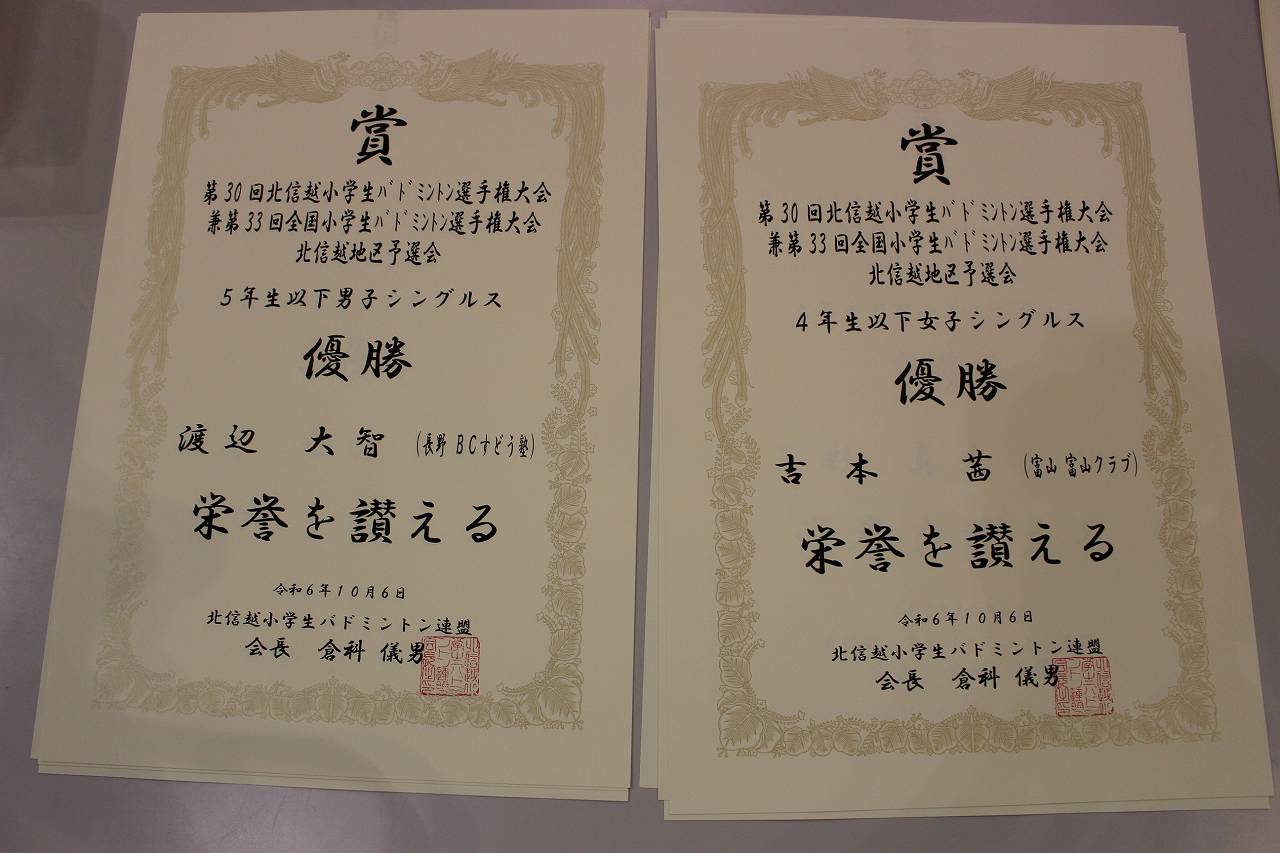 賞
第30回北信越小学生ﾊﾞﾄﾞﾐﾝﾄﾝ選手権大会
兼第33回全国小学生ﾊﾞﾄﾞﾐﾝﾄﾝ選手権大会
北信越地区予選会
5年生以下男子シングルス
優勝
渡辺 大智 (長野 BCすどう塾)
栄誉を讃える
令和6年10月6日
北信越小学生バドミントン連盟
会長 倉科 儀男
賞
第30回北信越小学生ﾊﾞﾄﾞﾐﾝﾄﾝ選手権大会
兼第33回全国小学生ﾊﾞﾄﾞﾐﾝﾄﾝ選手権大会
北信越地区予選会
4年生以下女子シングルス
優勝
吉本 茜 (富山 富山クラブ)
栄誉を讃える
令和6年10月6日
北信越小学生バドミントン連盟
会長 倉科 儀男